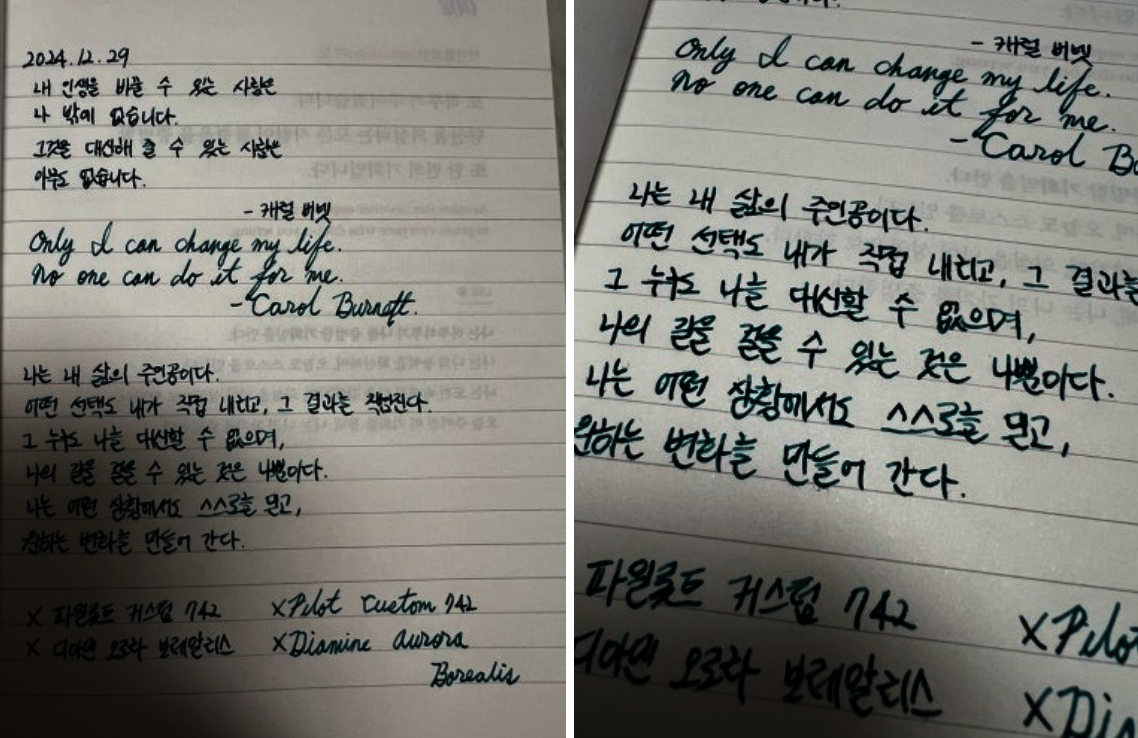 2024.12.29
내 인생을 바꿀 수 있는 사람은
나 밖에 없습니다.
그것을 대신해 줄 수 있는 사람은
아무도 없습니다.
- 캐럴 버넷
Only I can change my life.
No one can do it for me.
- Carol Burnett.
나는 내 삶의 주인공이다.
어떤 선택도 내가 직접 내리고, 그 결과는 책임진다.
그 누구도 나를 대신할 수 없으며,
나의 길을 걸을 수 있는 것은 나뿐이다.
나는 어떤 상황에서도 스스로를 믿고,
원하는 변화를 만들어 간다.
X 파일롯트 커스텀 742 X Pilot Custom 742
X 디아민 오로라 보레알리스 X Diamine Aurora
Borealis
- 캐럴 버넷
Only I can change my life.
No one can do it for me.
- Carol B
나는 내 삶의 주인공이다.
어떤 선택도 내가 직접 내리고, 그 결과는
그 누구도 나를 대신할 수 없으며,
나의 길을 걸을 수 있는 것은 나뿐이다.
나는 어떤 상황에서도 스스로를 믿고,
원하는 변화를 만들어 간다.
파일롯트 커스텀 742 X Pilo
디아민 오로라 보레알리스 X Dia